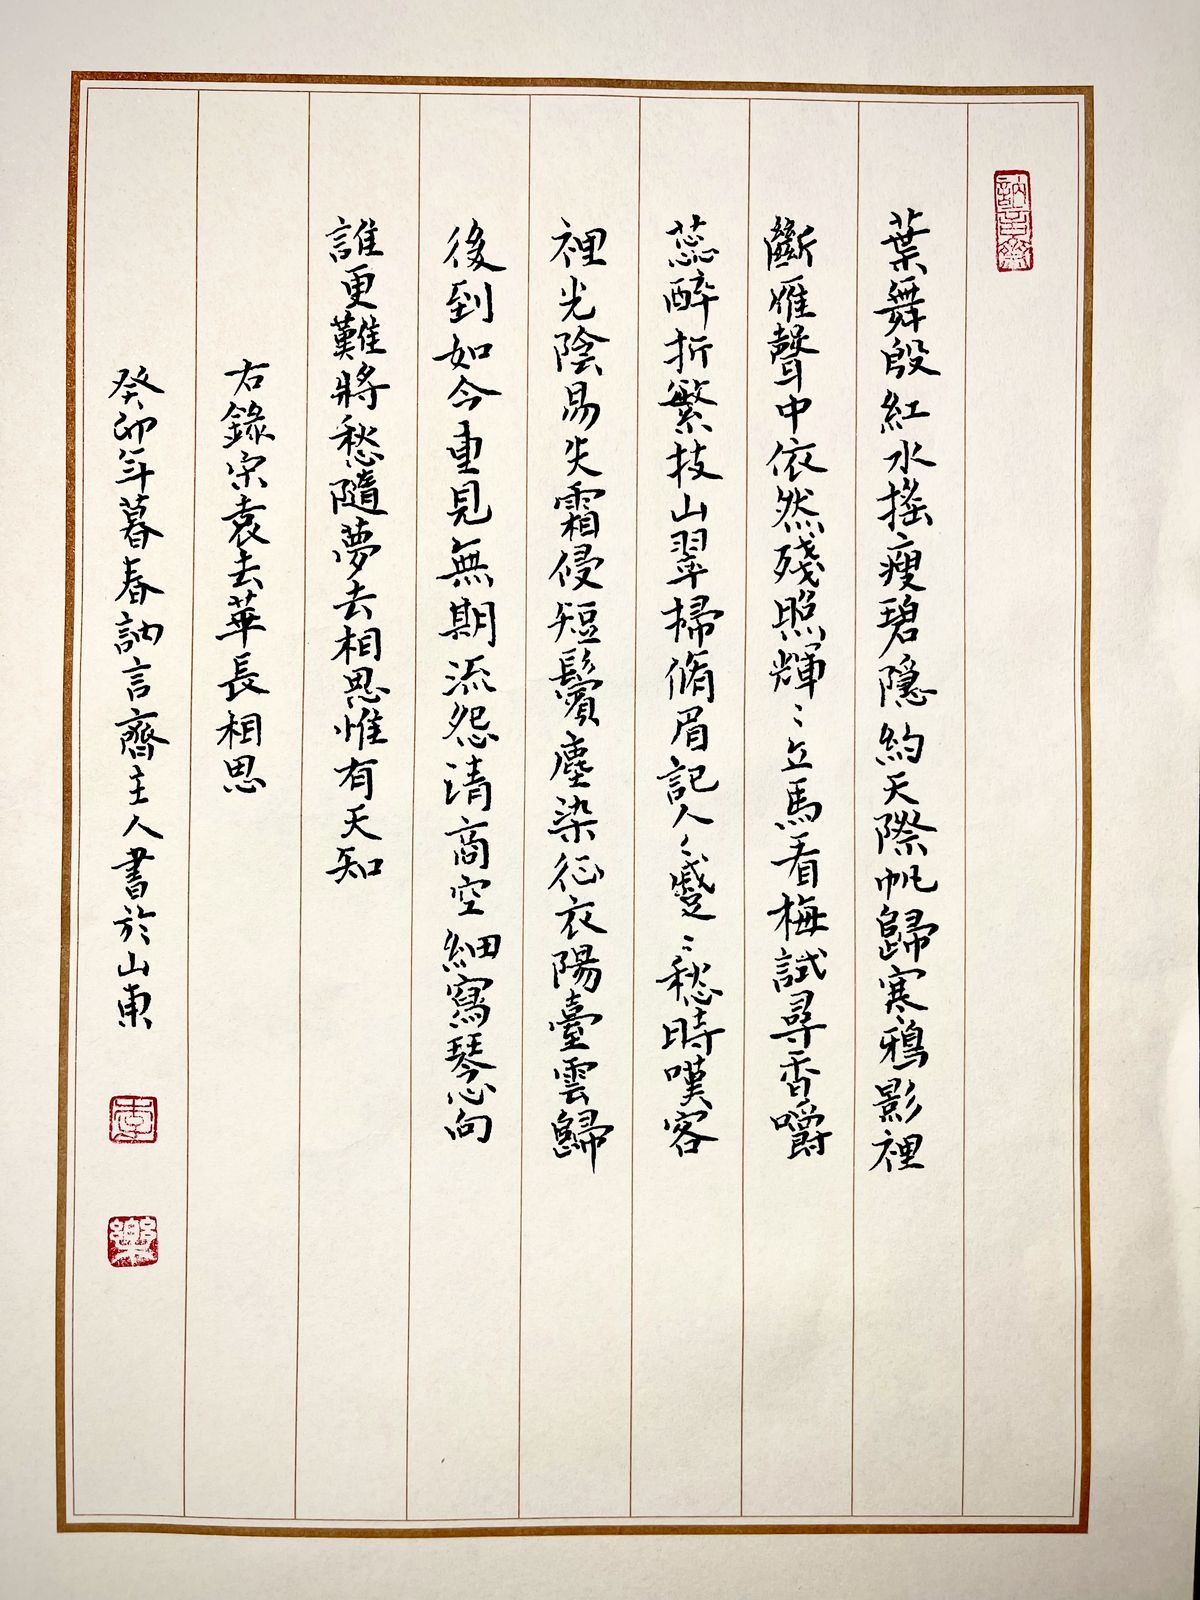 訥言齋
葉舞殷紅水搖瘦碧隱約天際帆歸寒鴉影裡
斷雁聲中依然殘照輝〻立馬看梅試尋香嚼
蕊醉折繁枝山翠掃脩眉記人〻蹙〻愁時嘆客
裡光陰易失霜侵短鬢塵染征衣陽臺雲歸
後到如今重見無期流怨清商空細寫琴心向
誰更難將愁隨夢去相思惟有天知
右錄宋袁去華長相思
癸卯年暮春訥言齋主人書於山東
李
樂